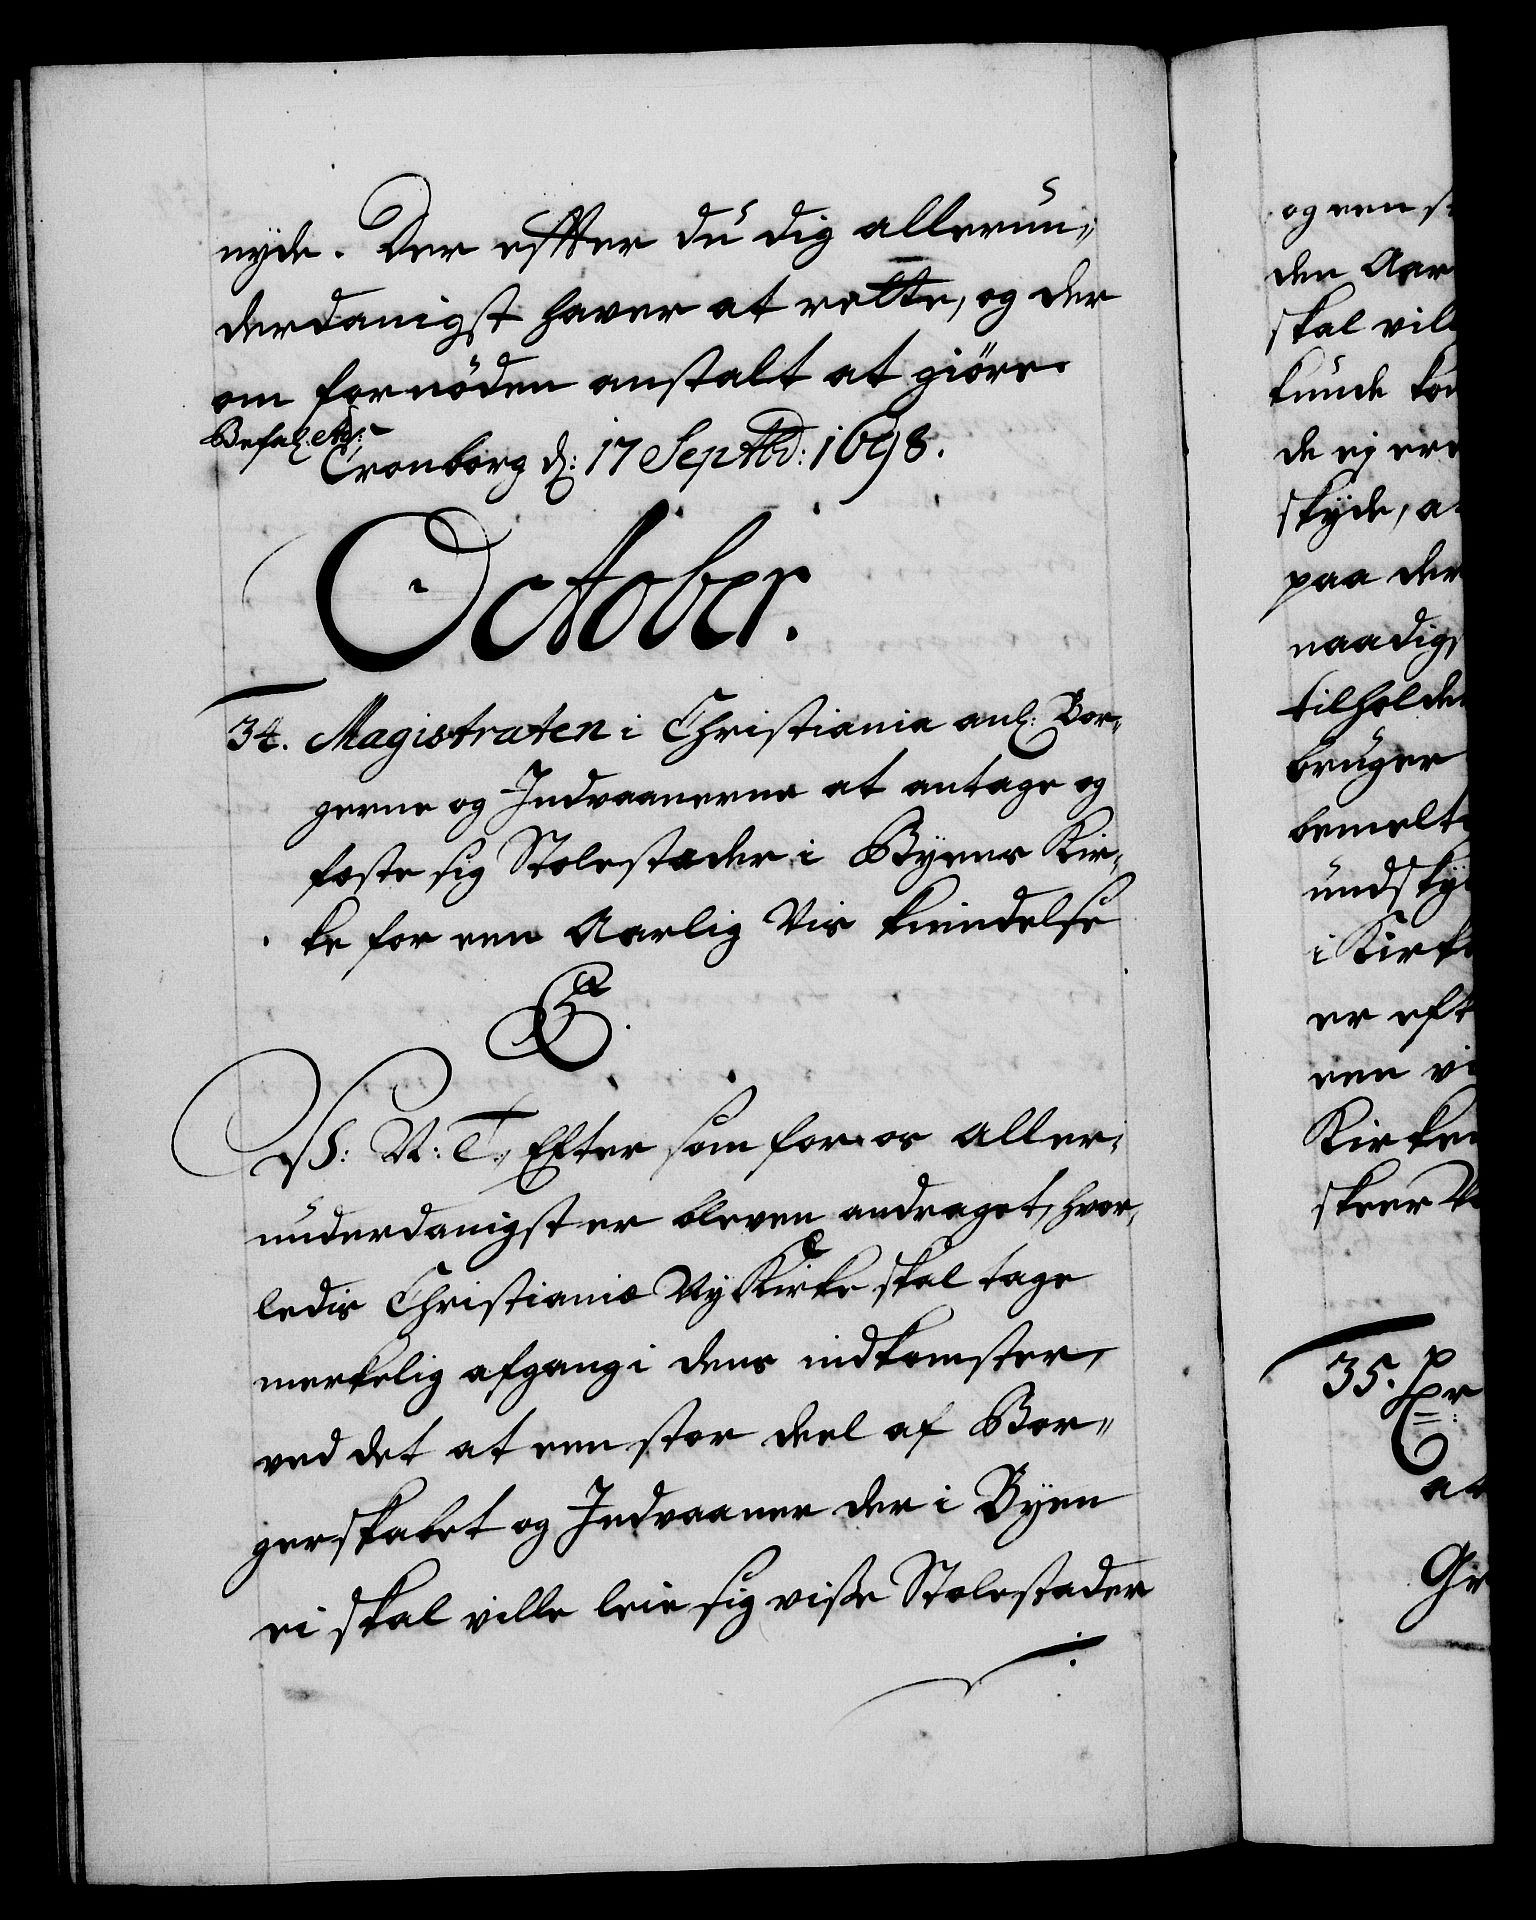 nyde. Der effter du dig allerun,,
derdanigst haver at rette, og der
om fornöden anstalt at giöre.
Befal: etc:
Cronborg d: 17 Septbd: 1698.
October.
34. Magistraten i Christiania anl: Bor-
gerne og Indvaanerne at antage og
fæste sig Stolestæder i Byens Kir-
ke for een Aarlig Vis kiendelse
C5.
V: G: T., Efter som for os aller-
underdanigst er bleven andraget, hvor-
ledis Christianiæ Ny Kirke skal tage
merkelig afgang i dens indkomster,
ved det at een stor deel af Bor,,
gerskabet og Indvaaner der i Byen
ei skal ville leie sig visse Stolestader
og een
den Aar
skal vil
kunde
de ej ere
skyde, a
paa der
naadigs
tilholde
bruger
bemelt
undsky
i Kirk
er eft
een vi
Kirken
skeer
35.
at
Gr